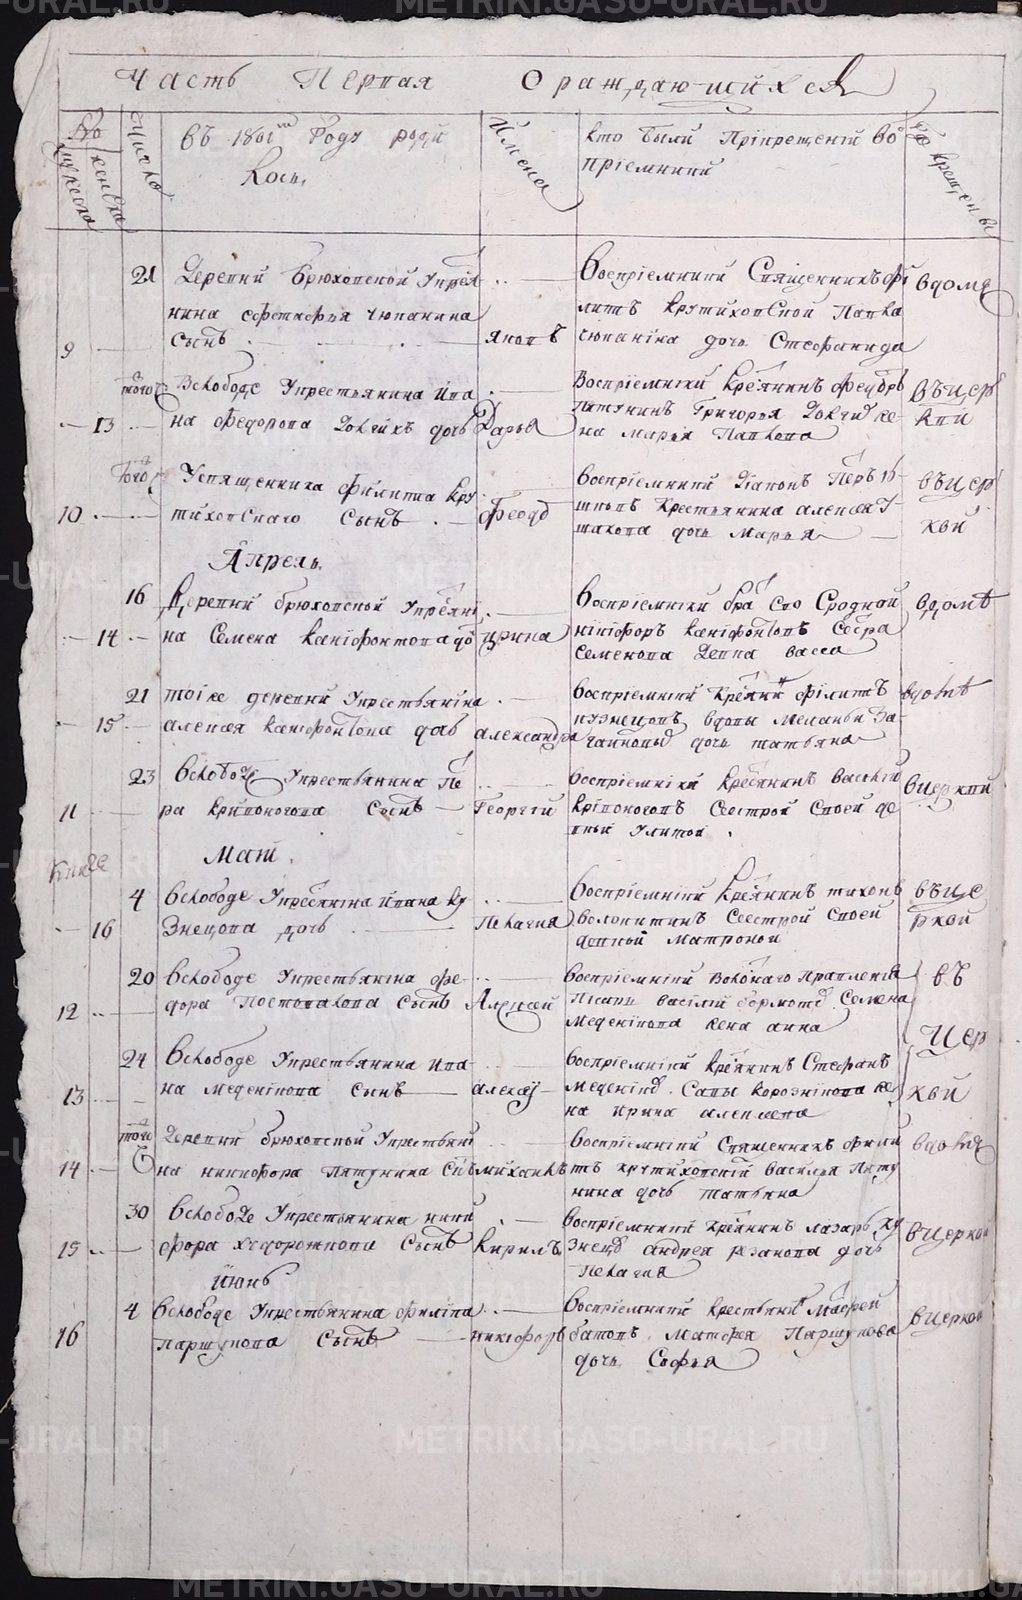 Часть Первая О раждаю-щихся
№
мужеска
женска
Число
Въ 1801м Году роди
лось
Имена
кто были Прикрещенiй во
прiемники
Где крещены
21 Деревни Брюховской Укрестя
нина Тюпанина
9 сынъ Яковъ
Воспрiемники Священникъ Фи
липъ крутиховской Павла
Тюпанина дочь Стефанида
вдоме
того Вслободе Укрестьянина Ива
13 на Федорова дочь Дарья
Воспрiемники крестянинъ Феодоръ
Пятунинъ Григорья же
на Марья Павлова
въцер
кви
того Усвященника Филиппа кру
10 тиховскаго Сынъ Феодо
воспрiемники Диаконъ Перъ
Крестьянина алексея
дочь Марья
въцер
кви
Апрель
16 Деревни брюховской Укрестяни
14 на Семена ксенофонтова до ирина
Воспрiемники бра его Сродной
никифоръ ксенофонтовъ Сестра
Семенова Девка васса
вдоме
21 тойже деревни Укрестьянина
15 алексея ксенофонтова дочь александра
воспрiемники крестянин Филипъ
кузнецовъ вдовы Меланьи
дочь татьяна
вдоме
23 вслободе Укрестьянина Пе
11 тра кривоногова Сынъ Георгiй
воспрiемники крестянинъ василiй
кривоноговъ Сестрой Своей де
вкой Улитой
вцеркви
Маiй
4 вслободе Укрестянина Ивана ку
16 знецова дочь Пелагия
воспрiемники крестянинъ тихонъ
волокитинъ Сестрой Своей
девкой Матроной
въце
ркви
20 вслободе Укрестьянина Фе
12 дора Постовалова Сынъ Алексей
воспрiемники волостнаго Правления
Писарь василий бормотов Семена
Меденикова жена анна
въ
Цер
24 вслободе Укрестьянина Ива
13 на Меденикова Сынъ алексей
воспрiемники крестянинъ Стефанъ
Медеников Савы корозникова же
на ирина алексеева
кви
того Деревни брюховской Укрестьяни
14 на никифора Пятунина Сынъ михаилъ
воспрiемники Священникъ Фили
пъ крутиховскiй василья Пяту
нина дочь татьяна
вдоме
30 вслободе Укрестьянина ники
15 фора худорожкова Сынъ Кирилъ
воспрiемники крестянинъ лазарь ку
знецов андрея рязанова дочь
Пелагия
вцеркви
Июнь
4 вслободе Укрестьянина Филипа
16 Паршукова Сынъ никифоръ
воспрiемники крестьянин Матфей
батовъ Матфея Паршукова
дочь Софья
вцеркви
METRIKI.GASO-URAL.RU